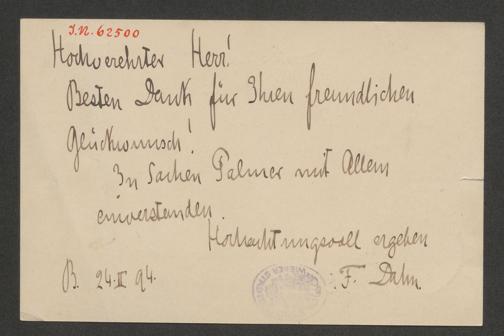 J.N. 62500
Hochverehrter Herr!
Besten Dank für Ihren freundlichen
Glückwunsch!
In Sachen Palmer mit Allem
einverstanden.
Hochachtungsvoll ergeben
B. 24. II 94. F. Dahn.